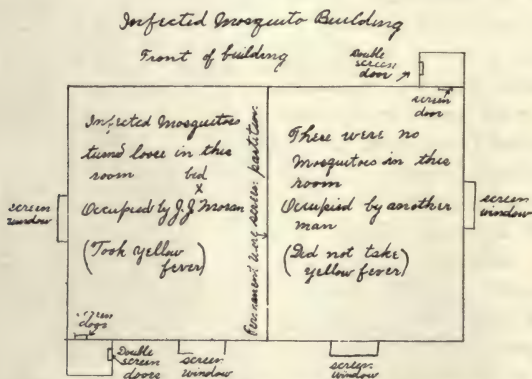 Infected Mosquito Building
Front of building
Double
screen
door
screen
door
Infected Mosquitoes
turned loose in this
room bed
x
Occupied by J.J. Moran
(Took yellow
fever)
Permanent wire screen partition.
There were no
Mosquitoes in this
room
Occupied by another
man
(Did not take
yellow fever)
screen
window
screen
window
screen
doors
Double
screen
doors
screen
window
screen
window